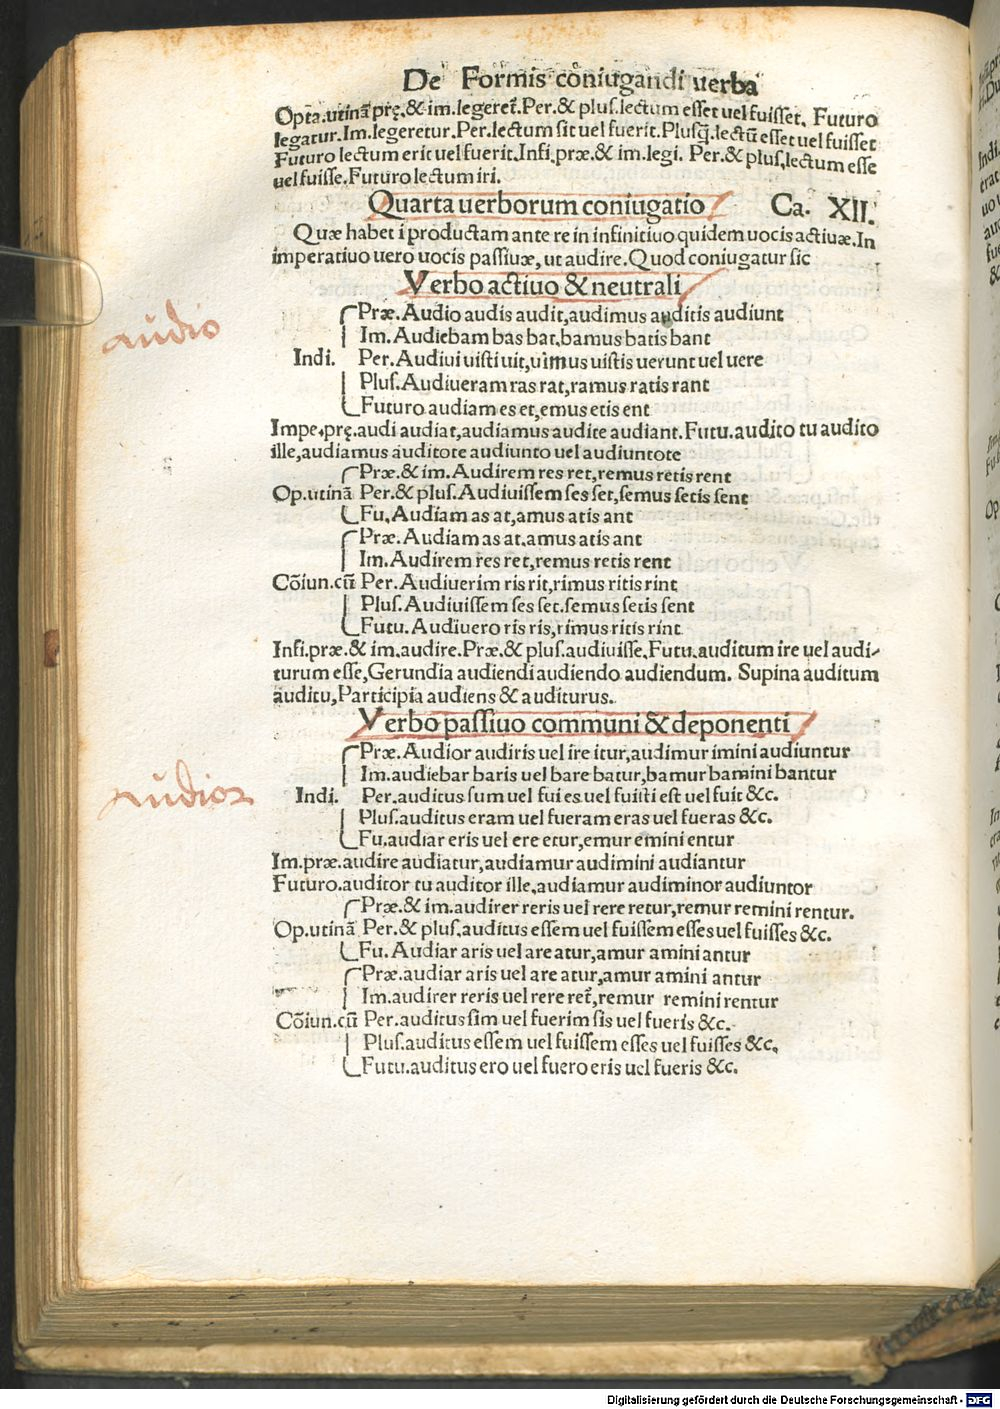 De Formis cōiugandi uerba
Opta.utinā prę.& im.legeret̃.Per.& pluſ.lectum eſſet uel fuiſſet. Futuro
legatur.Im.legeretur.Per.lectum ſit uel fuerit.Pluſq̃.lectū eſſet uel fuiſſet
Futuro lectum erit uel fuerit.Infi.præ.& im.legi. Per.& pluſ.lectum eſſe
uel fuiſſe.Futuro lectum iri.
Quarta uerborum coniugatio Ca. XII.
Quæ habet i productam ante re in infinitiuo quidem uocis actiuæ.In
imperatiuo uero uocis paſſiuæ,ut audire.Quod coniugatur ſic
Verbo actiuo & neutrali
audio
Præ.Audio audis audit,audimus auditis audiunt
Im.Audiebam bas bat,bamus batis bant
Indi. Per.Audiui uiſti uit,uimus uiſtis uerunt uel uere
Pluſ.Audiueram ras rat,ramus ratis rant
Futuro audiam es et,emus etis ent
Impe.prę.audi audiat,audiamus audite audiant.Futu.audito tu audito
ille,audiamus auditote audiunto uel audiuntote
Præ.& im.Audirem res ret,remus retis rent
Op.utinā Per.& pluſ.Audiuiſſem ſes ſet,ſemus ſetis ſent
Fu.Audiam as at,amus atis ant
Præ.Audiam as at,amus atis ant
Im.Audirem res ret,remus retis rent
Cōiun.cū Per.Audiuerim ris rit,rimus ritis rint
Pluſ.Audiuiſſem ſes ſet.ſemus ſetis ſent
Futu.Audiuero ris ris,rimus ritis rint
Infi.præ.& im.audire.Præ.& pluſ.audiuiſſe.Futu.auditum ire uel audi-
turum eſſe,Gerundia audiendi audiendo audiendum. Supina auditum
auditu,Participia audiens & auditurus.
Verbo paſſiuo communi & deponenti
Præ.Audior audiris uel ire itur,audimur imini audiuntur
Im.audiebar baris uel bare batur,bamur bamini bantur
audior
Indi. Per.auditus ſum uel fui es uel fuiſti eſt uel fuit &c.
Pluſ.auditus eram uel fueram eras uel fueras &c.
Fu.audiar eris uel ere etur,emur emini entur
Im.præ.audire audiatur,audiamur audimini audiantur
Futuro.auditor tu auditor ille,audiamur audiminor audiuntor
Præ.& im.audirer reris uel rere retur,remur remini rentur.
Op.utinā Per.& pluſ.auditus eſſem uel fuiſſem eſſes uel fuiſſes &c.
Fu.Audiar aris uel are atur,amur amini antur
Præ.audiar aris uel are atur,amur amini antur
Im.audirer reris uel rere ret̃,remur remini rentur
Cōiun.cū Per.auditus ſim uel fuerim ſis uel fueris &c.
Pluſ.auditus eſſem uel fuiſſem eſſes uel fuiſſes &c.
Futu.auditus ero uel fuero eris uel fueris &c.
Digitalisierung gefördert durch die Deutsche Forschungsgemeinschaft - DFG